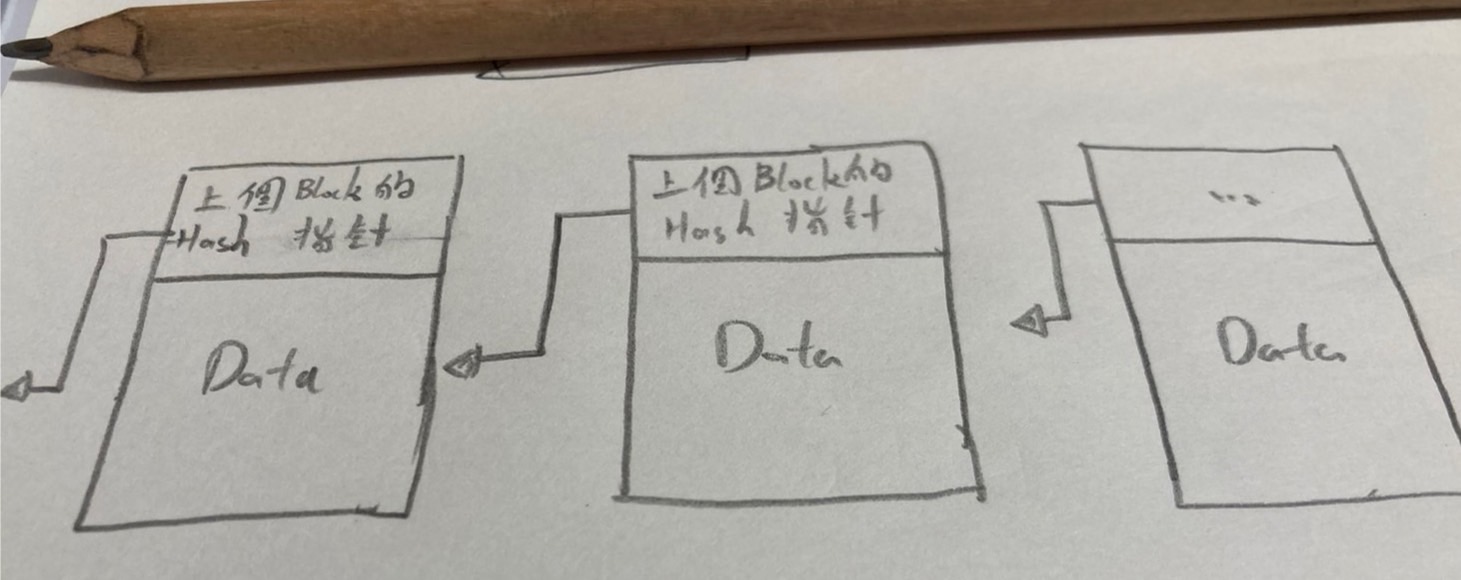 上個Block的
Hash 指針
Data
上個Block的
Hash 指針
Data
...
Data